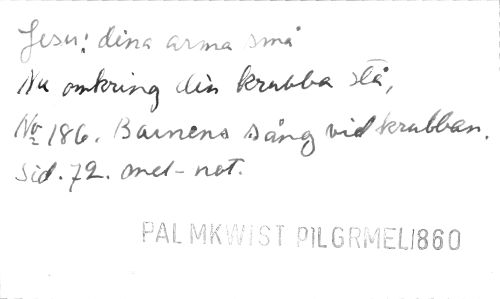 Jesu! dina arma små
Nu omkring din krubba stå,
No 186. Barnens sång vid krubban.
Sid. 72. mel-not.
PALMKWIST PILGRMEL1860